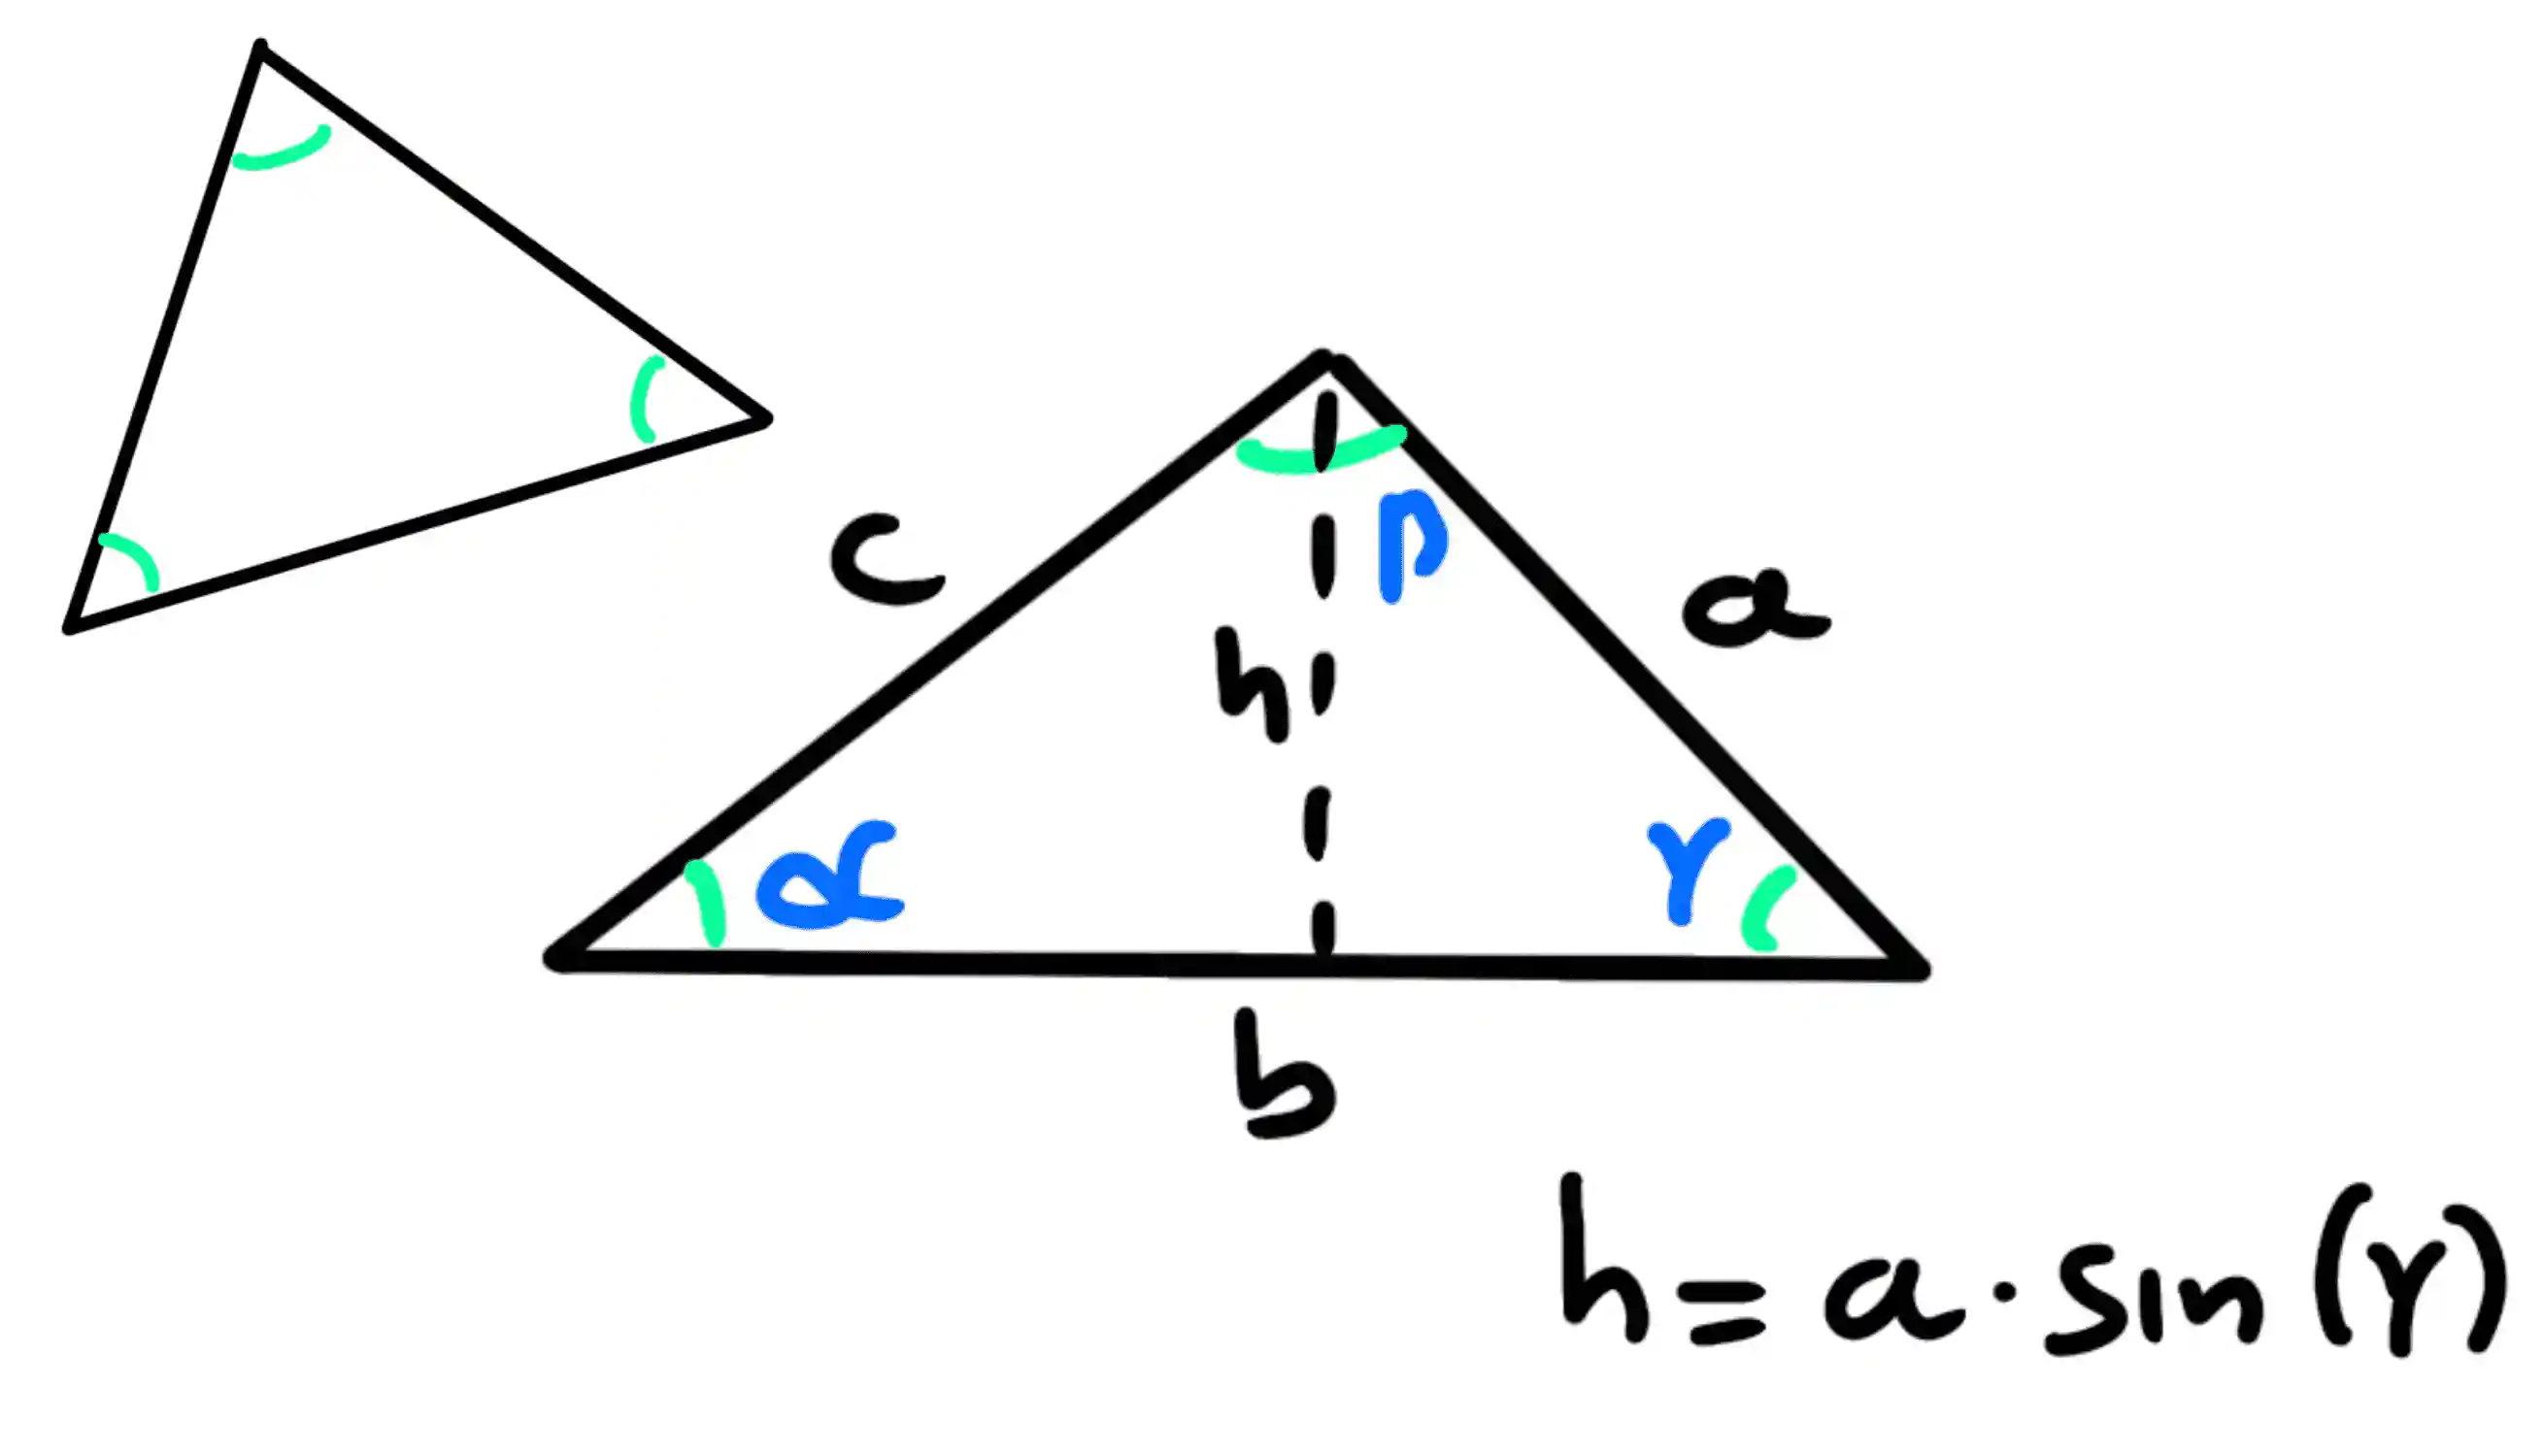 c
β
a
h
α
γ
b
h = a · sin (γ)